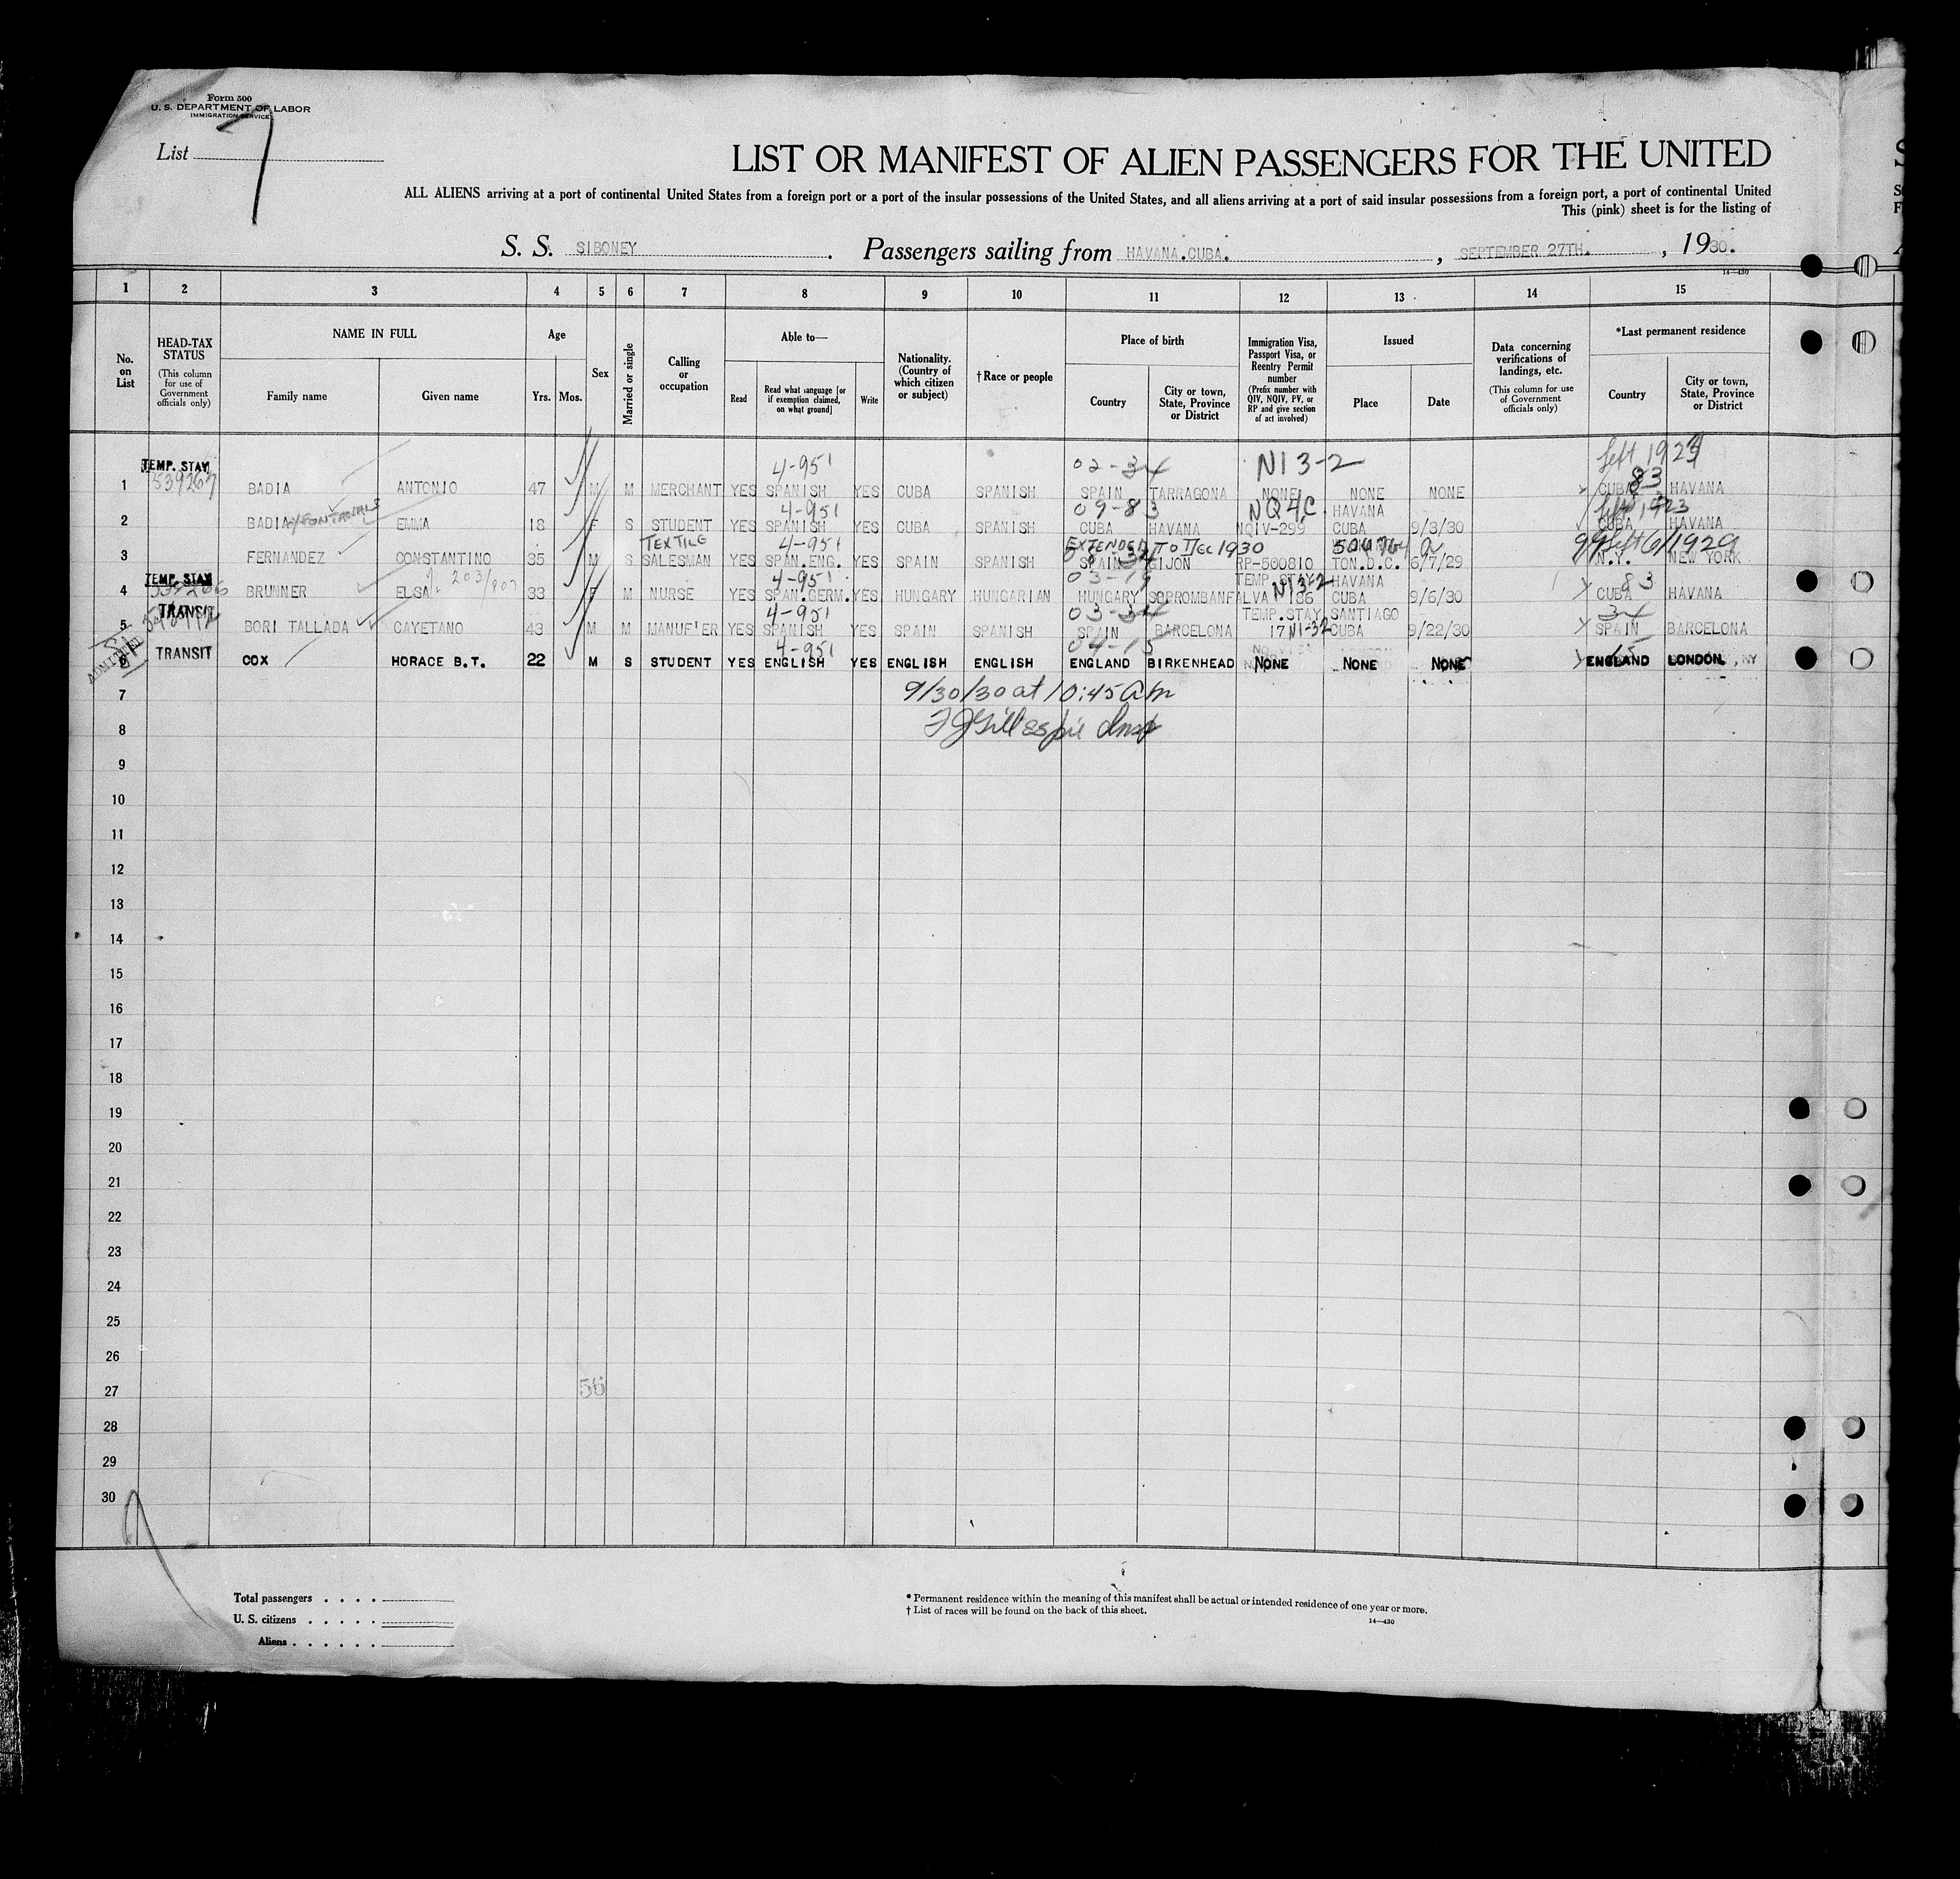 Form 500
U. S. DEPARTMENT OF LABOR
IMMIGRATION SERVICE
List 7
LIST OR MANIFEST OF ALIEN PASSENGERS FOR THE UNITED
ALL ALIENS arriving at a port of continental United States from a foreign port or a port of the insular possessions of the United States, and all aliens arriving at a port of said insular possessions from a foreign port, a port of continental United
This (pink) sheet is for the listing of
S. S. SIBONEY . Passengers sailing from HAVANA.CUBA. , SEPTEMBER 27TH. , 1930.
14—430
1 2 3 4 5 6 7 8 9 10 11 12 13 14 15
No. on List
HEAD-TAX STATUS (This column for use of Government officials only)
NAME IN FULL
Family name Given name
Age
Yrs. Mos.
Sex
Married or single
Calling or occupation
Able to—
Read Read what language [or if exemption claimed, on what ground] Write
Nationality. (Country of which citizen or subject)
† Race or people
Place of birth
Country City or town, State, Province or District
Immigration Visa, Passport Visa, or Reentry Permit number (Prefix number with QIV, NQIV, PV, or RP and give section of act involved)
Issued
Place Date
Data concerning verifications of landings, etc. (This column for use of Government officials only)
*Last permanent residence
Country City or town, State, Province or District
TEMP. STAY 4-951 02-34 N1 3-2 left 1923
1 BADIA ANTONIO 47 M M MERCHANT YES SPANISH YES CUBA SPANISH SPAIN TARRAGONA NONE NONE NONE CUBA 83 HAVANA
4-951 09-83 NQ4C HAVANA left 1923
2 BADIA EMMA 18 F S STUDENT YES SPANISH YES CUBA SPANISH CUBA HAVANA NQIV-299 CUBA 9/3/30 CUBA HAVANA
TEXTILE 4-951 EXTENDED TO DEC 1930 504764
3 FERNANDEZ CONSTANTINO 35 M S SALESMAN YES SPAN.ENG. YES SPAIN SPANISH SPAIN GIJON RP-560810 TON.D.C. 6/7/29 N.Y. NEW YORK
TEMP. STAY 203/907 4-951 03-19 TEMP. STAY N13-2 HAVANA
4 BRUNNER ELSA 33 F M NURSE YES SPAN.GERM. YES HUNGARY HUNGARIAN HUNGARY SOPROMBANFALVA 136 CUBA 9/6/30 CUBA 83 HAVANA
TRANSIT 4-951 03-34 TEMP. STAY SANTIAGO 34
5 BORI TALLADA CAYETANO 43 M M MANUF'ER YES SPANISH YES SPAIN SPANISH SPAIN BARCELONA 17 N1-32 CUBA 9/22/30 SPAIN BARCELONA
ADMITTED 4-951 04-15
6 TRANSIT COX HORACE B.T. 22 M S STUDENT YES ENGLISH YES ENGLISH ENGLISH ENGLAND BIRKENHEAD NONE NONE NONE ENGLAND LONDON
7 9/30/30 at 10:45 am
8 Gillespie Insp
9
10
11
12
13
14
15
16
17
18
19
20
21
22
23
24
25
26
27 56
28
29
30
Total passengers
U. S. citizens
Aliens
* Permanent residence within the meaning of this manifest shall be actual or intended residence of one year or more.
† List of races will be found on the back of this sheet.
14—430